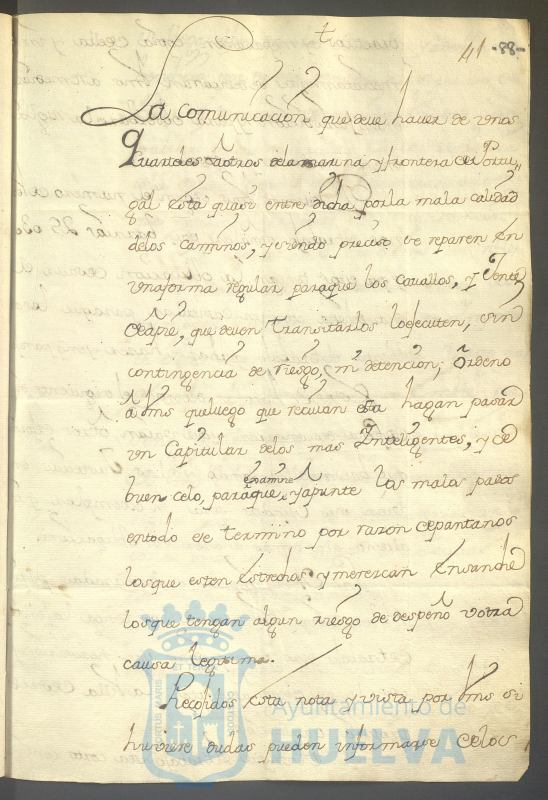 t
41 -88-
La comunicacion que deve haver de unos
Quarteles a otros dela marina y frontera de Portu,,
gal esta quasi entre dicha por la mala calidad
delos caminos, y siendo preciso se reparen en
una forma regular paraque los cavallos, y Gente
deapie, que deven transitarlos loejecuten, sin
contingencia de riesgo, ni detencion; Ordeno
a Vms queluego que recivan esta hagan pasar
un Capitular delos mas Inteligentes, y de
buen celo, paraque examine y apunte los malos pasos
entodo ese termino por razon de pantanos
losque esten estrechos y merezcan ensanche
losque tengan algun riesgo de despeño u otra
causa legitima.
Recojidos esta nota y vista por Vms si
huviere dudas pueden informarse de los
Ayuntamiento de
HUELVA